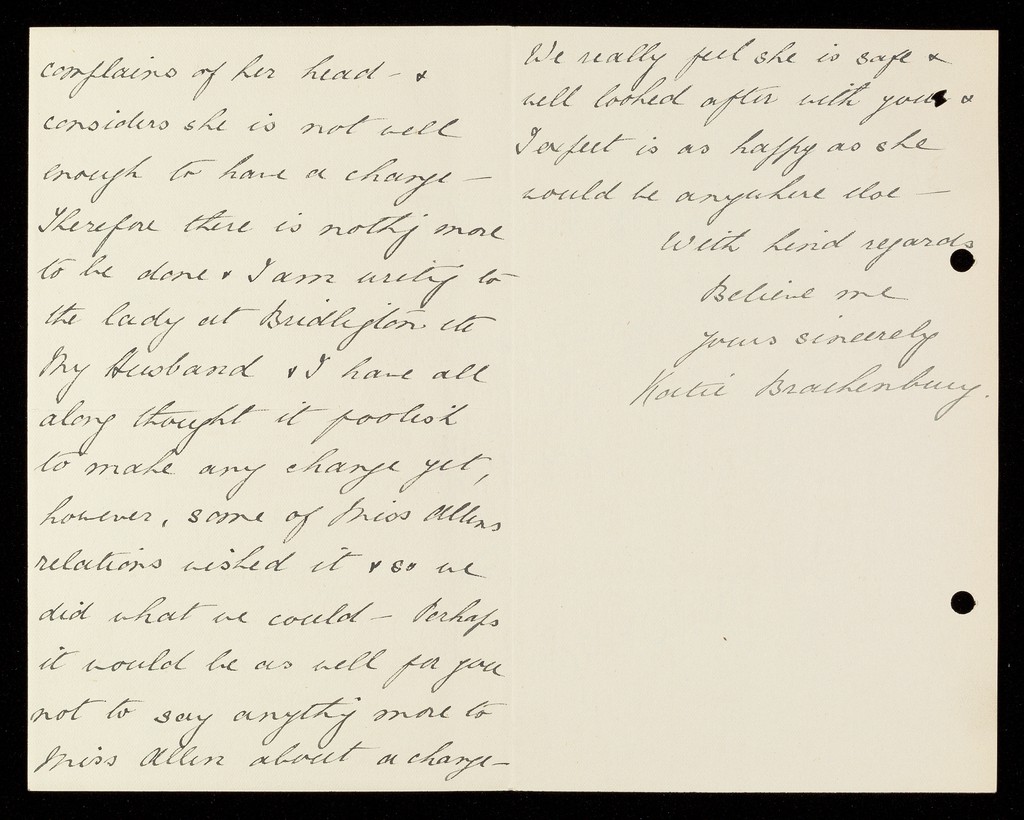 complains of her head - &
considers she is not well
enough to have a change -
Therefore there is nothg more
to be done & I am writig to
the lady at Bridligton etc
My Husband & I have all
along thought it foolish
to make any change yet,
however, some of Miss Allens
relations wished it & so we
did what we could - Perhaps
it would be as well for you
not to say anythg more to
Miss Allen about a change -
We really feel she is safe &
well looked after with you &
I expect is as happy as she
would be anywhere else -
With kind regards
Believe me
yours sincerely
Katie Brackenbury.